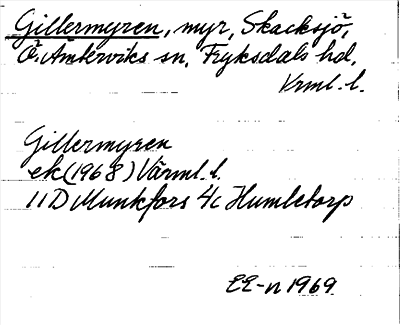 Gillermyren, myr, Skacksjö,
Ö. Ämterviks sn, Fryksdals hd,
Vrml. l.
Gillermyren
ek (1968) Värml. l.
11D Munkfors 4c Humletorp
EE-n 1969